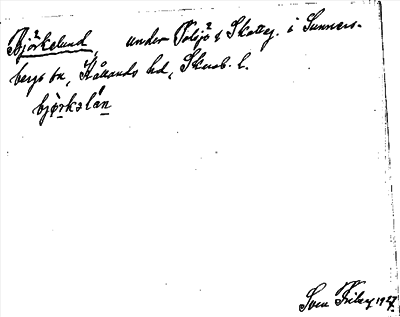 Björkelund, under Tolsjö i Skatteg. i Sunners-
bergs sn, Kållands hd, Skarab. l.
bjørkslån
Sven Friberg 1927.